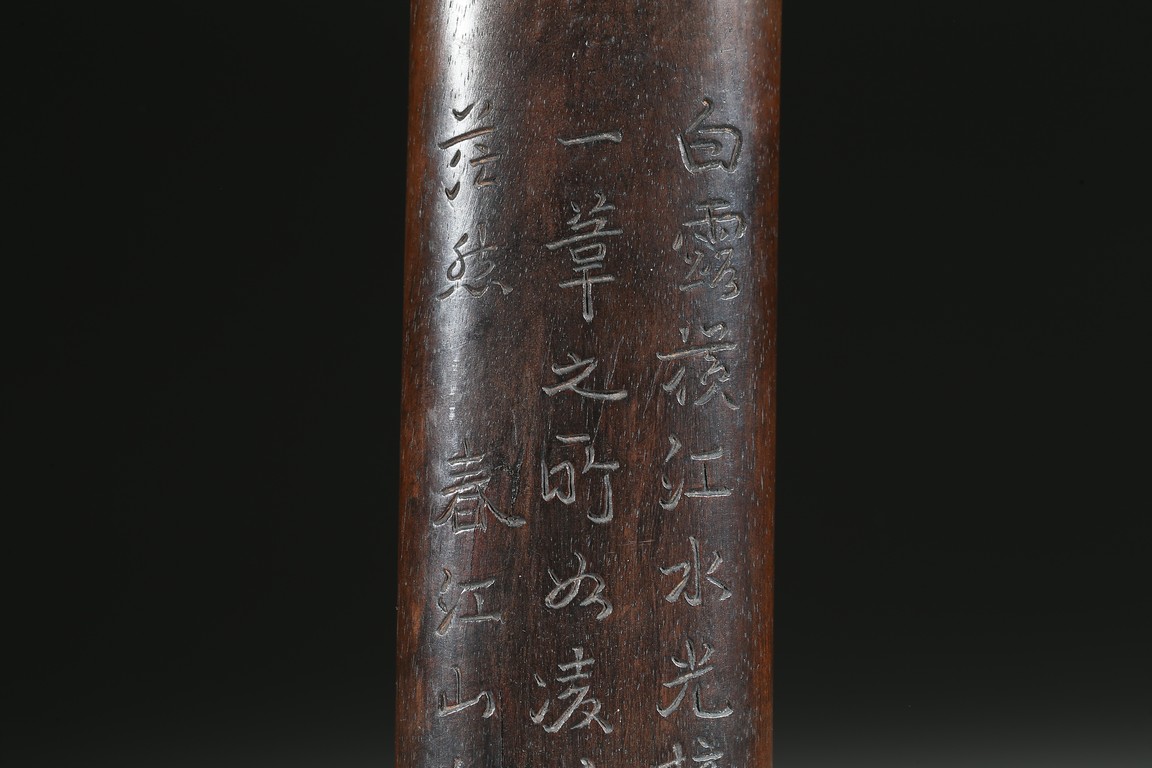 白露横江水光
一葦之所如凌
茫然 春江山